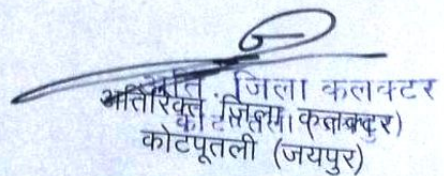 अति. जिला कलक्टर
अतिरिक्त जिला कलक्टर)
कोटपूतली (जयपुर)